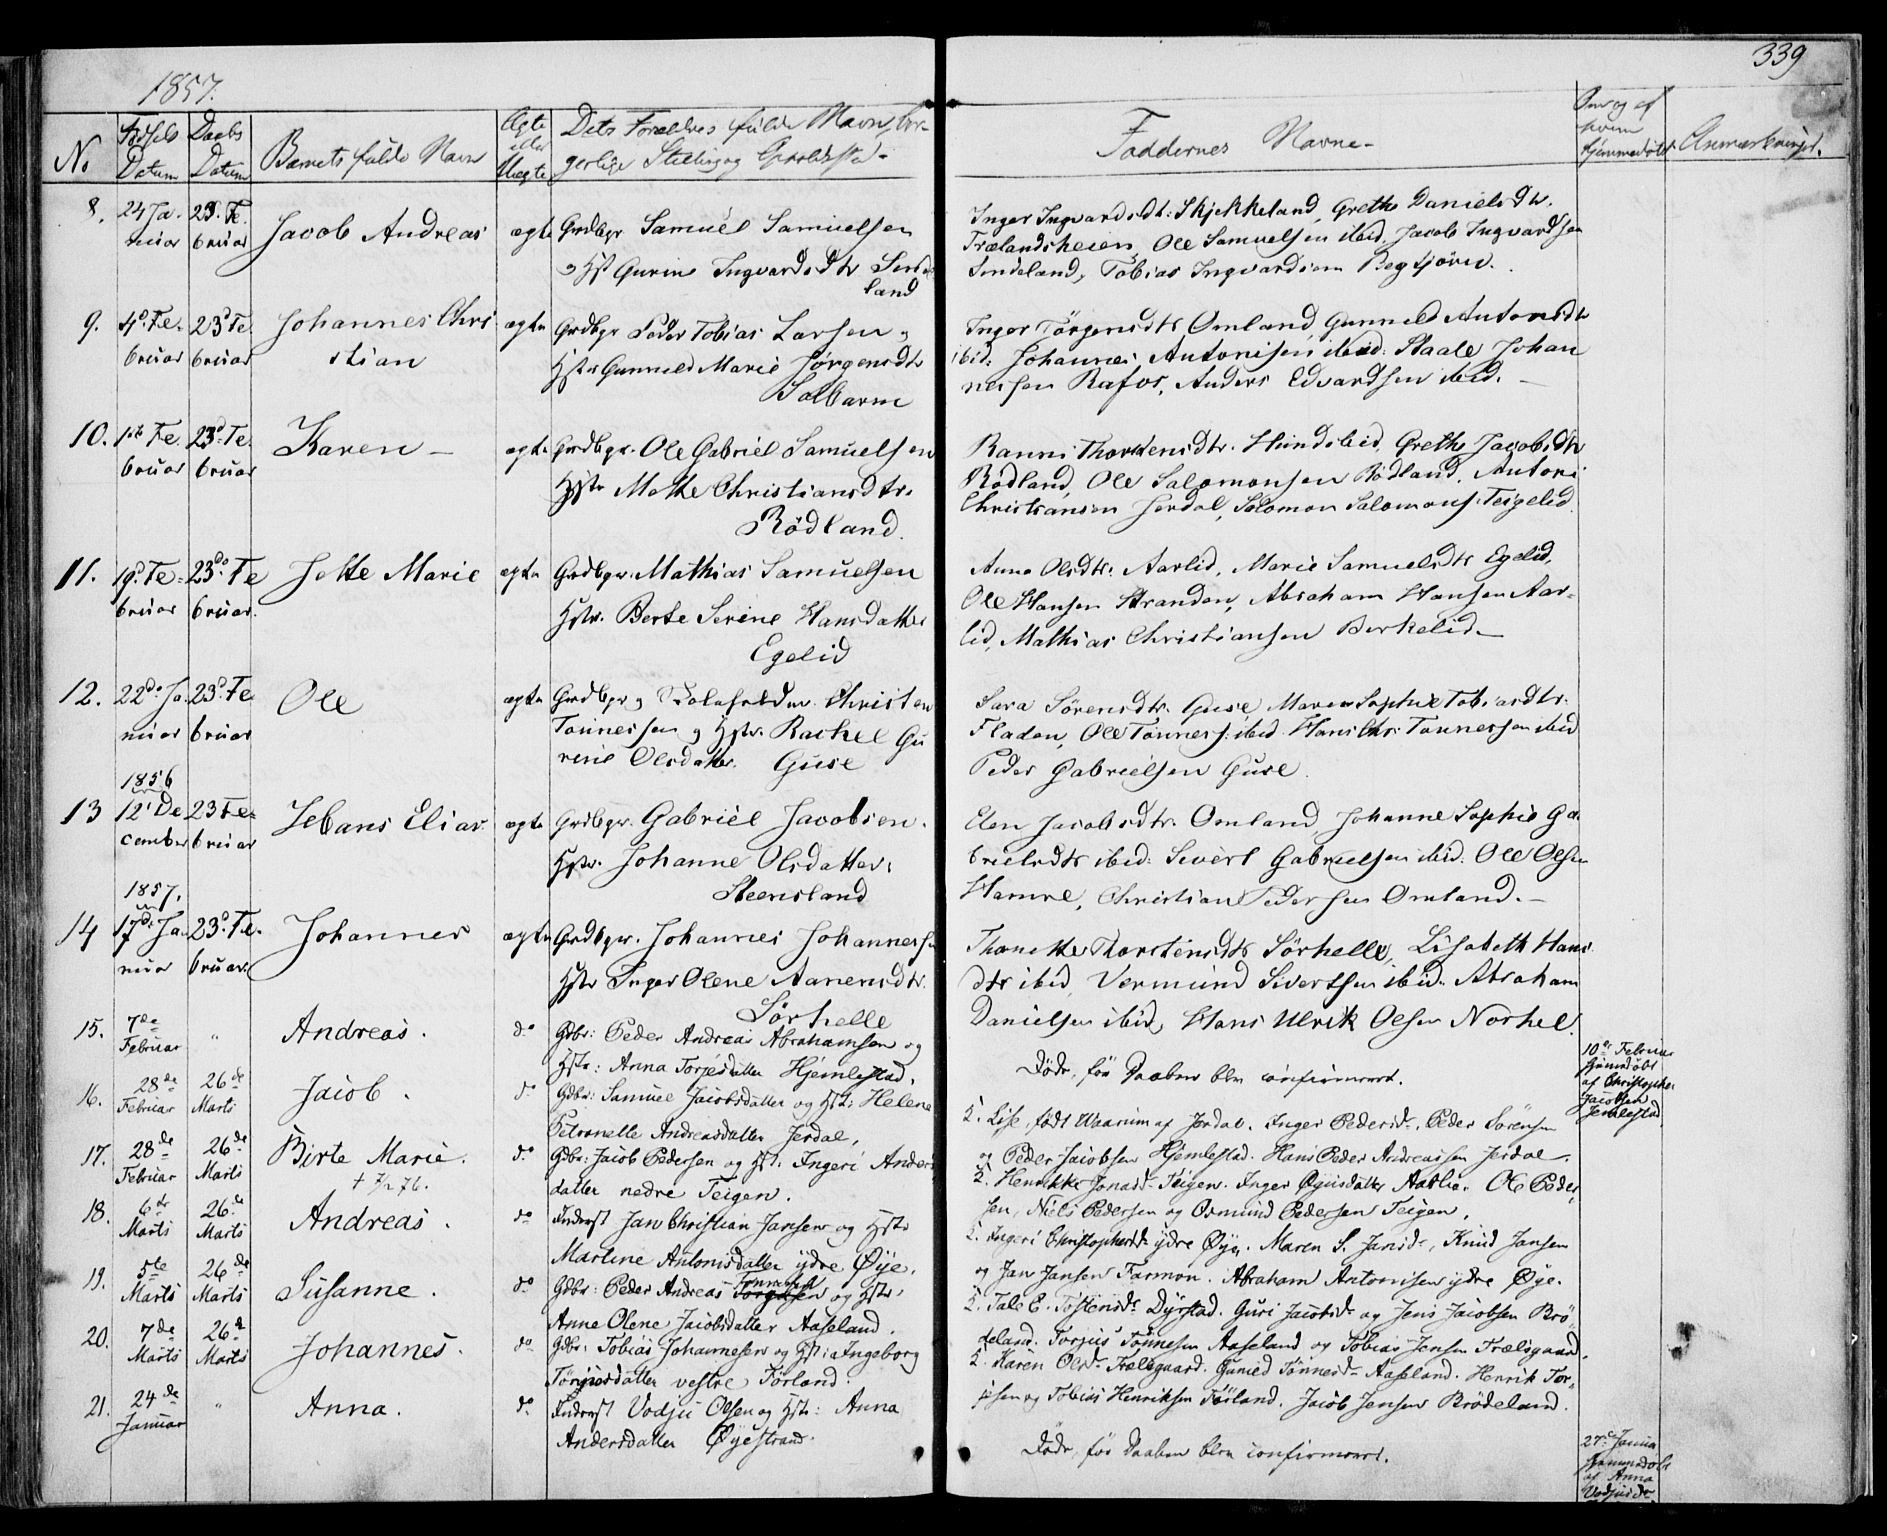 339
1857.
No
Fødsels Datum
Daabs Datum
Barnets fulde Navn
Ægte eller Uægte
Dets Forældres fulde Navn, bor-
gerlige Stilling og Opholdsted.
Faddernes Navne.
Om og af hvem hjemmedøbt
Anmærkninger.
8. 24 Ja- 23d. Fe.
nuar bruar Jacob Andreas ægte Grdbgr Samuel Samuelsen
Hst Gurine Ingvardsdtr
land
Inger Ingvardsdt: Skjekkeland, Grethe Danielsdtr.
Trælandsheien, Ole Samuelsen ibid. Jacob Ingvardsen
Tobias Ingvardsen
9. 4d. Fe- 23d Fe. Johannes Chri ægte Grdbgr Peder Tobias Larsen
bruar bruar stian Hstr Gunnild Marie Jørgensdtr
Inger Jörgensdtr Omland, Gunnild Antonsdtr
ibid: Johannes Antonisen ibid: Staale Johan
nesen Rafos, Anders Edvardsen ibid. —
10. 1ste Fe. 23d. Fe. Karen — ægte Grdbgr. Ole Gabriel Samuelsen
bruar bruar Hstr Mette Christiansdtr.
Rödland.
Ranni Hundsbid, Grethe Jacobsdtr
Rödland, Ole Salomonsen Rödland, Antoni
Christiansen Jerdal, Salomon Salomons. Teigelid.
11. 19d. Fe- 23de Fe Jette Marie ægte Grdbgr. Mathias Samuelsen
bruar bruar. Hstr. Berte Serine Hansdatter
Egelid
Anne Olsdtr. Aarlid, Marie Samuelsdtr Egelid,
Ole Hansen Stranden, Abraham Hansen Aar-
lid, Mathias Christiansen Birkelid. —
12. 22de Ja- 23d Fe Ole ægte Grdbgr og Christen
nuar bruar Tönnessen og Hstr. Rachel Gu
rine Olsdatter. Guse
Sara Sörensdtr. Guse Maren Sophie Tobiasdtr.
Fladen, Ole Tönness. ibid. Hans Chr. Tönnessen ibid
Peder Gabrielsen Guse.
1856
13 12t De 23 Fe- Jebans Elias ægte Grdbgr. Gabriel Jacobsen.
cember bruar Hstr. Johanne Olsdatter.
Steensland
Elen Jacobsdtr. Omland, Johanne Sophie Ga-
brielsdtr ibid: Sivert Gabrielsen ibid: Ole Olsen
Hamre, Christian Pedersen Omland. —
1857.
14 17de Ja- 23d. Fe- Johannes ægte Grdbgr. Johannes Johannessen
nuar bruar. Hstr Inger Olene Aanensdtr.
Sörhelle
Thonette Thorstensdtr Sörhelle, Lisabeth Hans
dtr ibid, Vermund Sivertsen ibid. Abraham
Danielsen ibid, Hans Ulrik Olsen Norhel.
15. 7de Februar " Andreas. do Gdbr: Peder Andreas Abrahamsen og
Hstr: Anna Torjesdatter Hjemlestad.
Döde, för Daaben blev confirmeret.
10de Februar hjemmedöbt af Christopher Jacobsen Jemlestad
16. 28de Februar 26de Marts Jacob. do Gdbr: Samuel Jacobsdatter og Hst: Helene
Petronelle Andreasdatter Jerdal.
F. Lise, født Waanum af Jerdal. Inger Pedersd., Peder Sörensen
og Peder Jacobsen Hjemlestad. Hans Peder Andreassen Jerdal.
17. 28de Februar 26de Marts Birte Marie. do Gdbr: Jacob Pedersen og Hst: Ingeri Anders
datter nedre Teigen.
F. Henrikke Jonasd. Teigen. Inger Aarlie. Ole Peder
sen, Niels Pedersen og Osmund Pedersen Teigen.
18. 6te Marts 26de Marts Andreas. do Inderst Jan Christian Jansen og Hst:
Martine Antonisdatter ydre Øye.
F. Ingeri Christophersd. ydre Øye. Maren S. Jansd., Knud Jansen
og Jan Jansen Farmon. Abraham Antonisen ydre Øye.
19. 5te Marts 26de Marts Susanne. do Gdbr: Peder Andreas Tönnesen og Hst:
Anne Olene Jacobsdatter Aaseland.
F. Tale E. Tostensd. Dyrstad. Guri Jacobsd. og Jens Jacobsen Brö-
deland. Torjus Tönnesen Aaseland og Tobias Jensen Trælsgaard.
20. 7de Marts 26de Marts Johannes. do Gdbr: Tobias Johannesen og Hst: Ingeborg
Tönnesdatter vestre Förland.
F. Karen Olsd. Trælsgaard. Gunild Tönnesd. Aaseland. Henrik Tor-
jesen og Tobias Henriksen Förland. Jacob Jensen Brödeland.
21. 24de Januar " Anna. do Inderst Vodju Olsen og Hst: Anna
Andersdatter Øyestrand.
Döde, för Daaben blev confirmeret.
27de Janua hjemmedöbt af Anna Vodjusd.